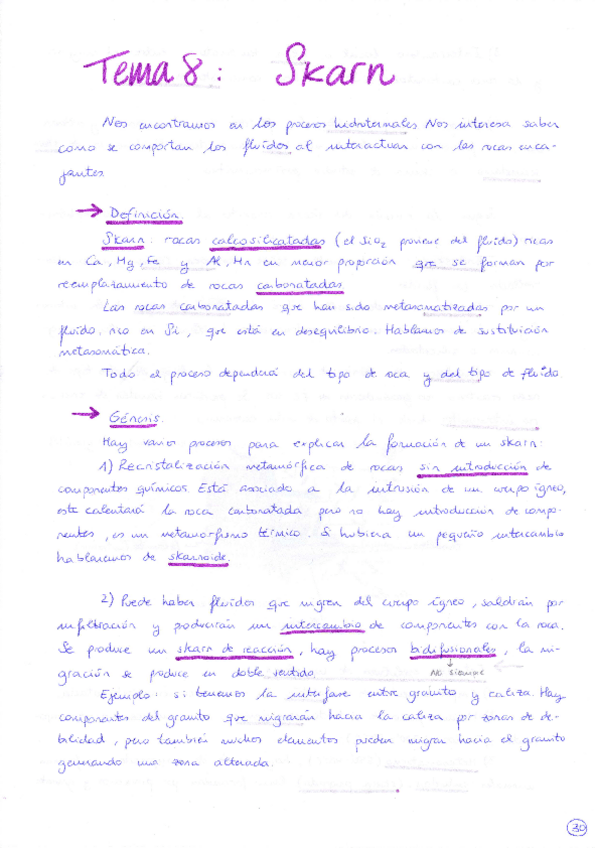 Tema 8: Skarn
Nos encontramos en los procesos hidrotermales Nos interesa saber
como se comportan los fluidos al interactuar con las rocas enca-
jantes.
→ Definición.
Skarn: rocas calcosilicatadas (el SiO2 proviene del fluido) ricas
en Ca, Mg, Fe y Al, Mn en menor proporción que se forman por
reemplazamiento de rocas carbonatadas
Las rocas carbonatadas que han sido metasomatizadas por un
fluido rico en Si, que está en desequilibrio. Hablamos de sustitución
metasomática.
Todo el proceso dependerá del tipo de roca y del tipo de fluido.
→ Génesis.
Hay varios procesos para explicar la formación de un skarn:
1) Recristalización metamórfica de rocas sin introducción de
componentes químicos. Está asociado a la intrusión de un cuerpo ígneo,
este calentará la roca carbonatada pero no hay introducción de compo-
nentes, es un metamorfismo térmico. Si hubiera un pequeño intercambio
hablaremos de skarnoide.
2) Puede haber fluidos que migren del cuerpo ígneo, saldrán por
infiltración y producirán un intercambio de componentes con la roca.
Se produce un skarn de reacción, hay procesos bidifusionales, la mi-
gración se produce en doble sentido.
No siempre
Ejemplo: si tenemos la interfase entre granito y caliza. Hay
componentes del granito que migrarán hacia la caliza por zonas de de-
bilidad, pero también muchos elementos pueden migrar hacia el granito
generando una zona alterada.
30